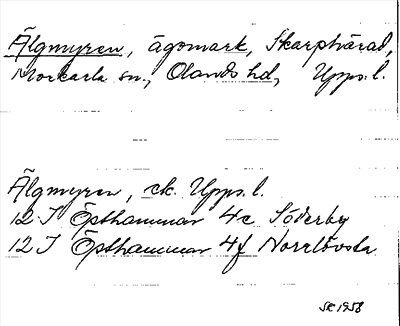 Älgmyren, ägomark, Skarphärad,
Morkarla sn., Olands hd, Upps. l.
Älgmyren, ek. Upps. l.
12 I Östhammar 4e Söderby
12 I Östhammar 4f Norrlövsta
SK 1958